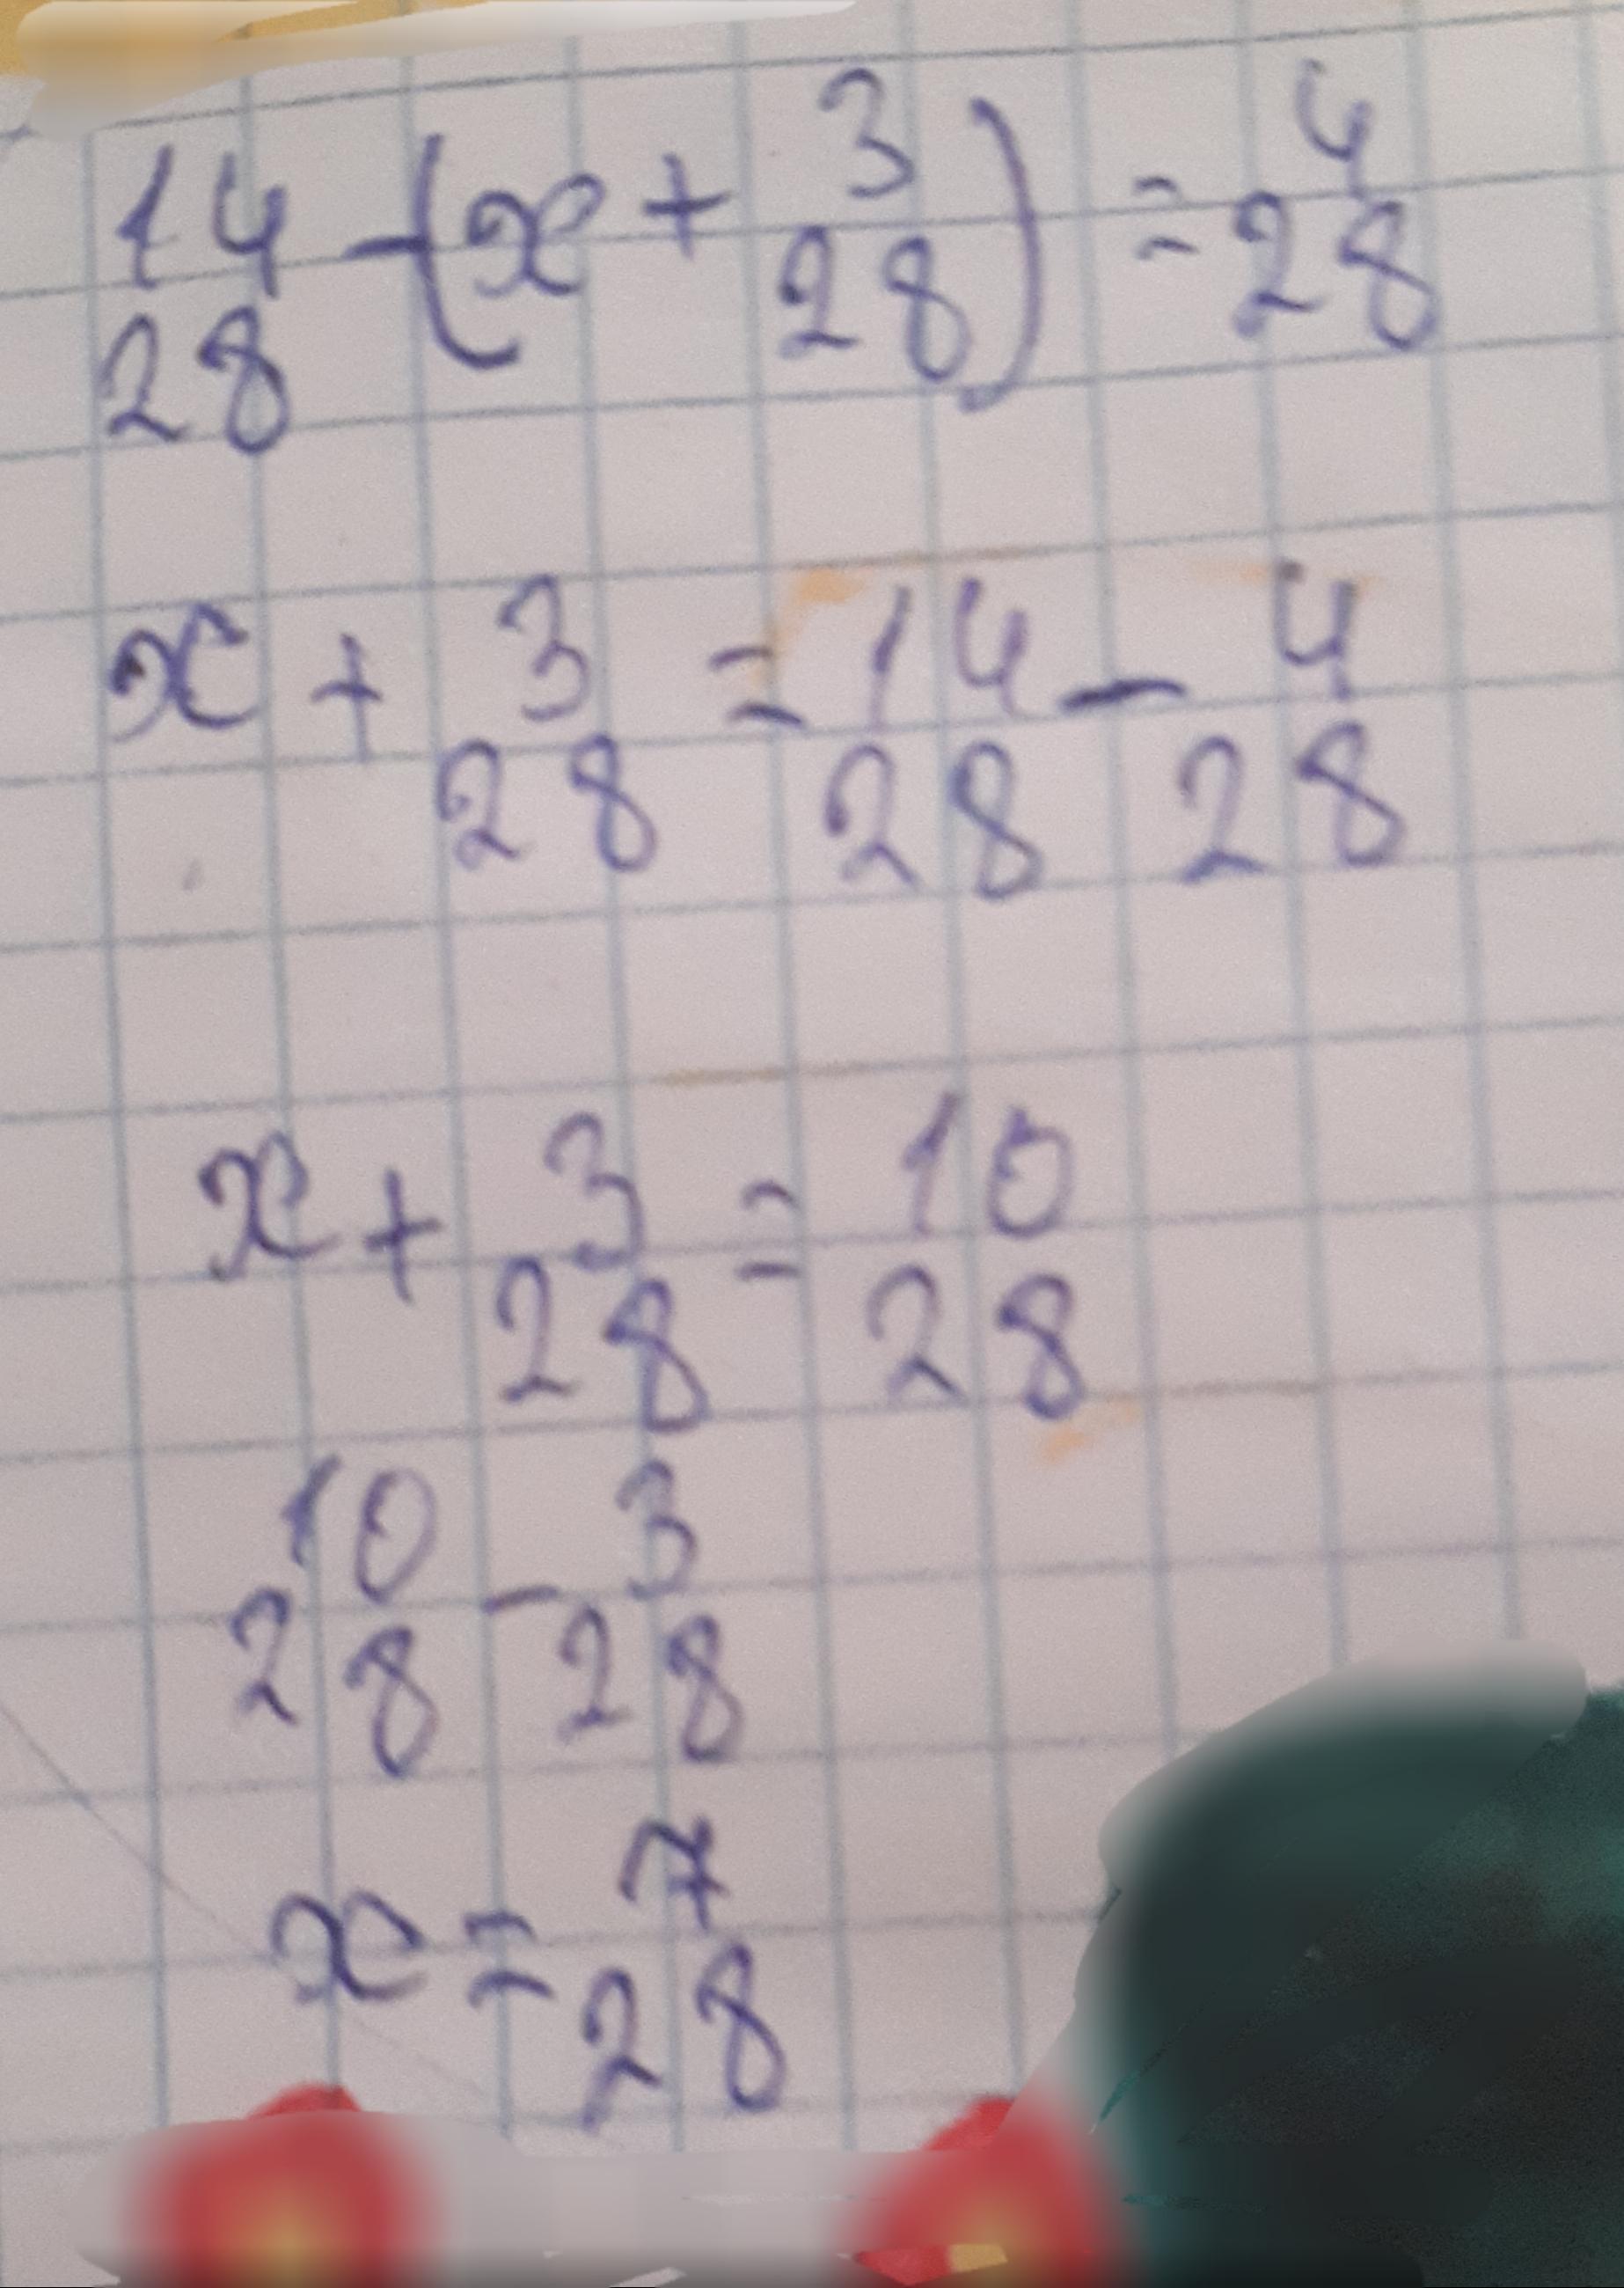 14/28 - (x + 3/28) = 4/28
x + 3/28 = 14/28 - 4/28
x + 3/28 = 10/28
10/28 - 3/28
x = 7/28